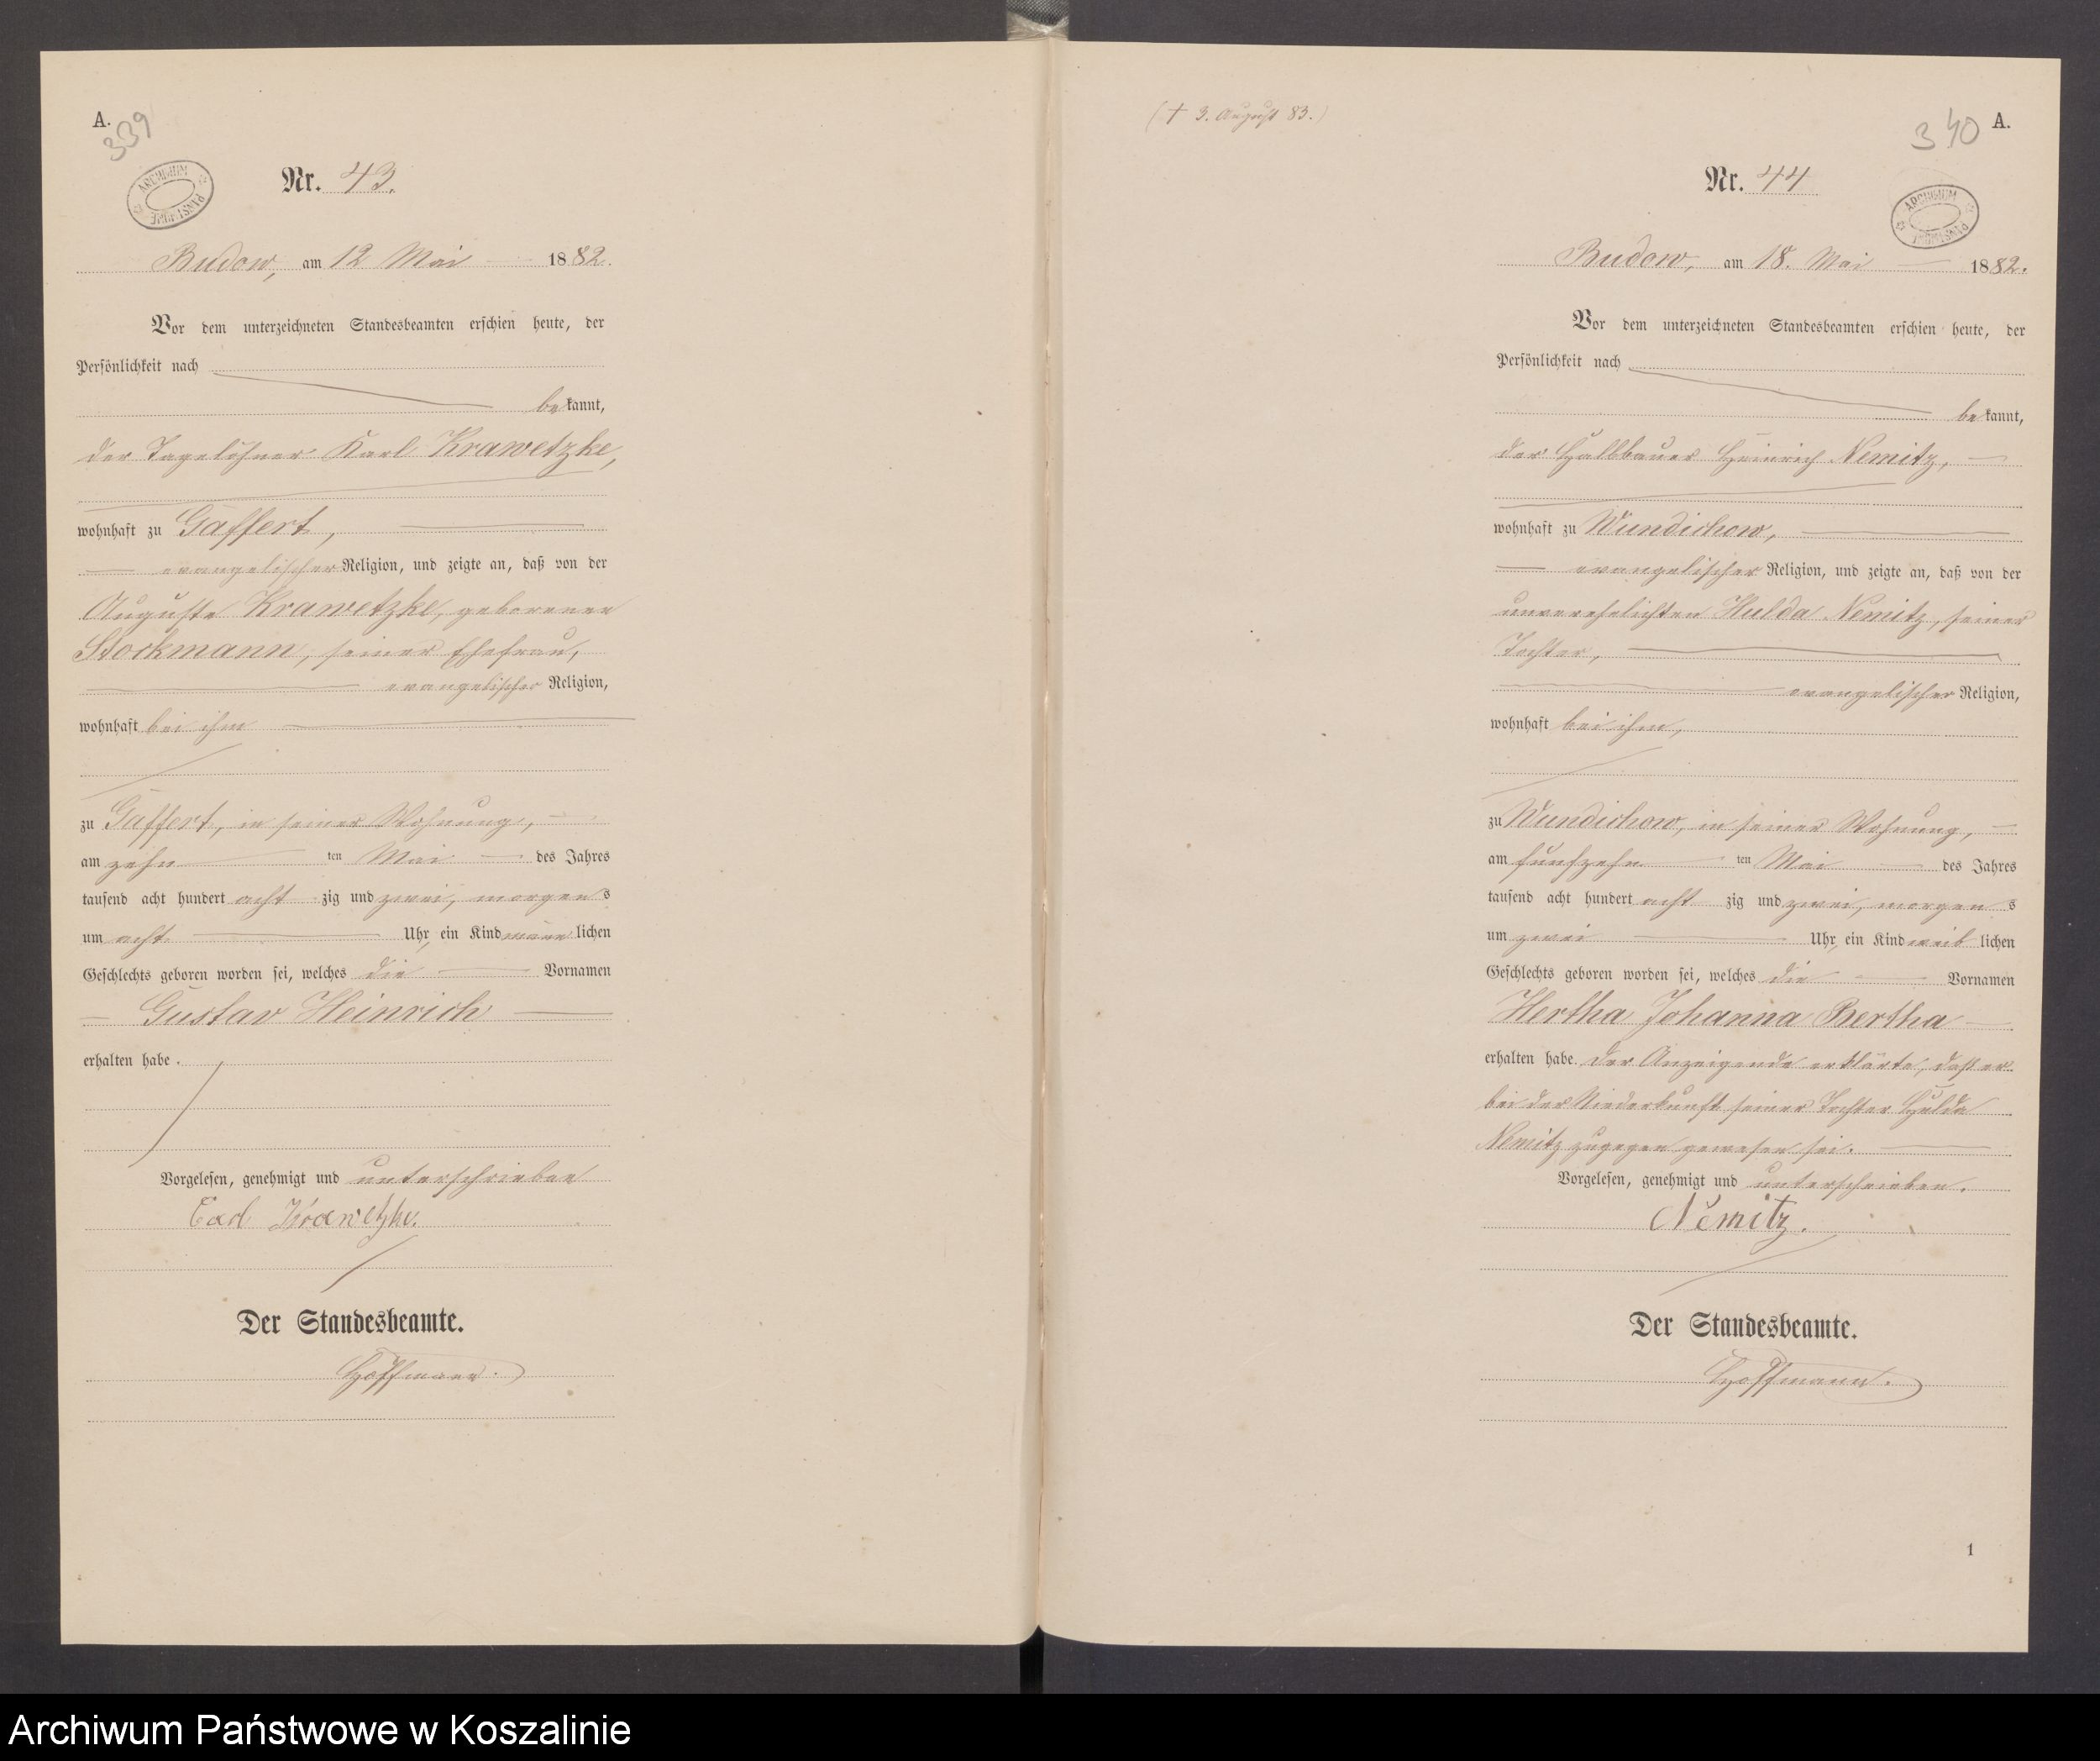 A.
339
ARCHIWUM PAŃSTWOWE
Nr. 43.
Budow, am 12 Mai 1882.
Vor dem unterzeichneten Standesbeamten erschien heute, der
Persönlichkeit nach
bekannt,
der Tagelöhner Karl Krawetzke,
wohnhaft zu Gaffert,
evangelischer Religion, und zeigte an, daß von der
Auguste Krawetzke, geborenen
Stockmann, seiner Ehefrau,
evangelischer Religion,
wohnhaft bei ihm
zu Gaffert, in seiner Wohnung,
am zehn ten Mai des Jahres
tausend acht hundert acht zig und zwei, morgens
um acht Uhr, ein Kind männlichen
Geschlechts geboren worden sei, welches die Vornamen
Gustav Heinrich
erhalten habe.
Vorgelesen, genehmigt und unterschrieben
Carl Krawetzke.
Der Standesbeamte.
Hoffmann.
(† 3. August 83.)
340
A.
ARCHIWUM PAŃSTWOWE
Nr. 44
Budow, am 18. Mai 1882.
Vor dem unterzeichneten Standesbeamten erschien heute, der
Persönlichkeit nach
bekannt,
der Halbbauer Heinrich Nemitz,
wohnhaft zu Wundichow,
evangelischer Religion, und zeigte an, daß von der
unverehelichten Hulda Nemitz, seiner
Tochter,
evangelischer Religion,
wohnhaft bei ihm,
zu Wundichow, in seiner Wohnung,
am fünfzehn ten Mai des Jahres
tausend acht hundert acht zig und zwei, morgens
um zwei Uhr, ein Kind weiblichen
Geschlechts geboren worden sei, welches die Vornamen
Hertha Johanna Bertha
erhalten habe. Der Anzeigende erklärte, daß er
bei der Niederkunft seiner Tochter Hulda
Nemitz zugegen gewesen sei.
Vorgelesen, genehmigt und unterschrieben.
Nemitz.
Der Standesbeamte.
Hoffmann.
1
Archiwum Państwowe w Koszalinie